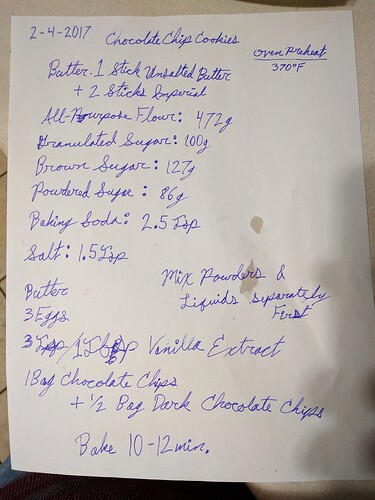 2-4-2017
Chocolate Chip Cookies
Oven Preheat
370°F
Butter: 1 Stick Unsalted Butter
+ 2 Sticks Imperial
All-Purpose Flour: 472g
Granulated Sugar: 100g
Brown Sugar: 127g
Powdered Sugar: 86g
Baking Soda: 2.5 Tsp
Salt: 1.5 Tsp
Mix Powders &
Liquids separately
First
Butter
3 Eggs
3 Tsp / 1 Tbsp Vanilla Extract
1 Bag Chocolate Chips
+ ½ Bag Dark Chocolate Chips
Bake 10-12 min.